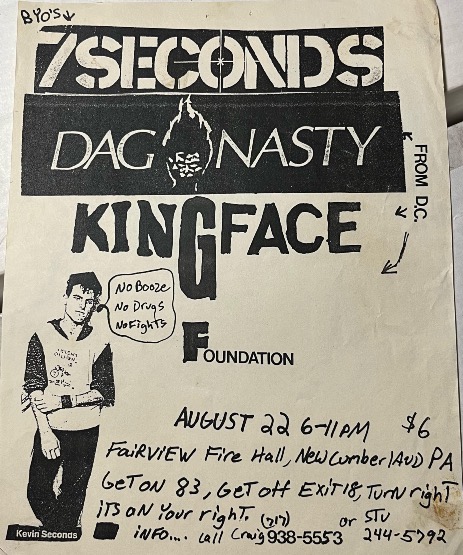 BYO's
7SECONDS
DAG NASTY
FROM D.C.
KINGFACE
No Booze
No Drugs
No Fights
FOUNDATION
AUGUST 22 6-11 PM $6
FAIRVIEW Fire Hall, New Cumberland PA
Get on 83, Get off Exit 18, Turn right
iTs on Your righT.
INFO... Call Craig (717) 938-5553 or STU 244-5792
Kevin Seconds